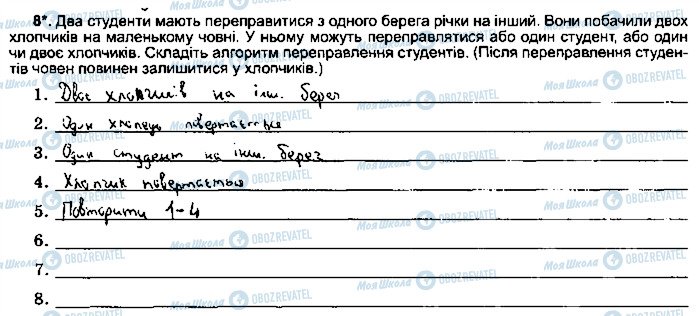 8*. Два студенти мають переправитися з одного берега річки на інший. Вони побачили двох
хлопчиків на маленькому човні. У ньому можуть переправлятися або один студент, або один
чи двоє хлопчиків. Складіть алгоритм переправлення студентів. (Після переправлення студен-
тів човен повинен залишитися у хлопчиків.)
1. Двоє хлопчиків на інш. берег
2. Один хлопець повертається
3. Один студент на інш. берег
4. Хлопчик повертається
5. Повторити 1-4
6.
7.
8.